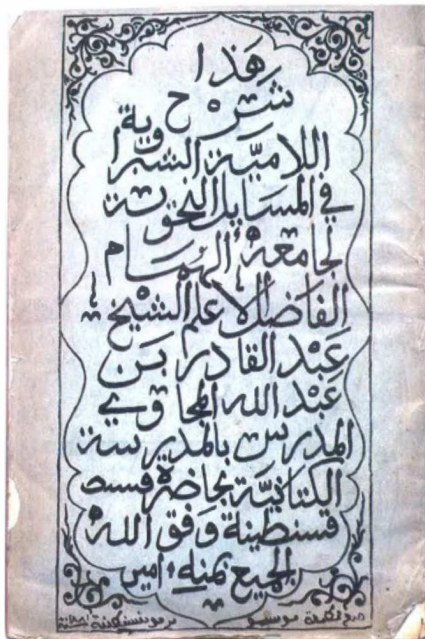 هَذَا
شَرْح
اللاميّة الشبراوية
في المسايل النحوية
لجامعه الهمام
الفاضل الاعلم الشيخ
عَبْد القادر بَن
عَبْد الله المجاوي
المدرس بالمدرسة
الكتانيّة بحاضرة قسمـ
قسنطينة وفق الله
الجميع بمنه ءامين